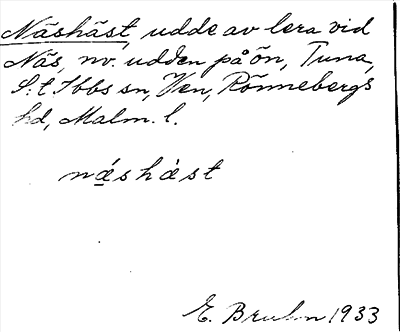 Näshäst, udde av lera vid
Näs, nv. udden på ön, Tuna,
S:t Ibbs sn, Ven, Rönnebergs
hd, Malm. l.
næ̀shæ̀st
E. Bruhn 1933